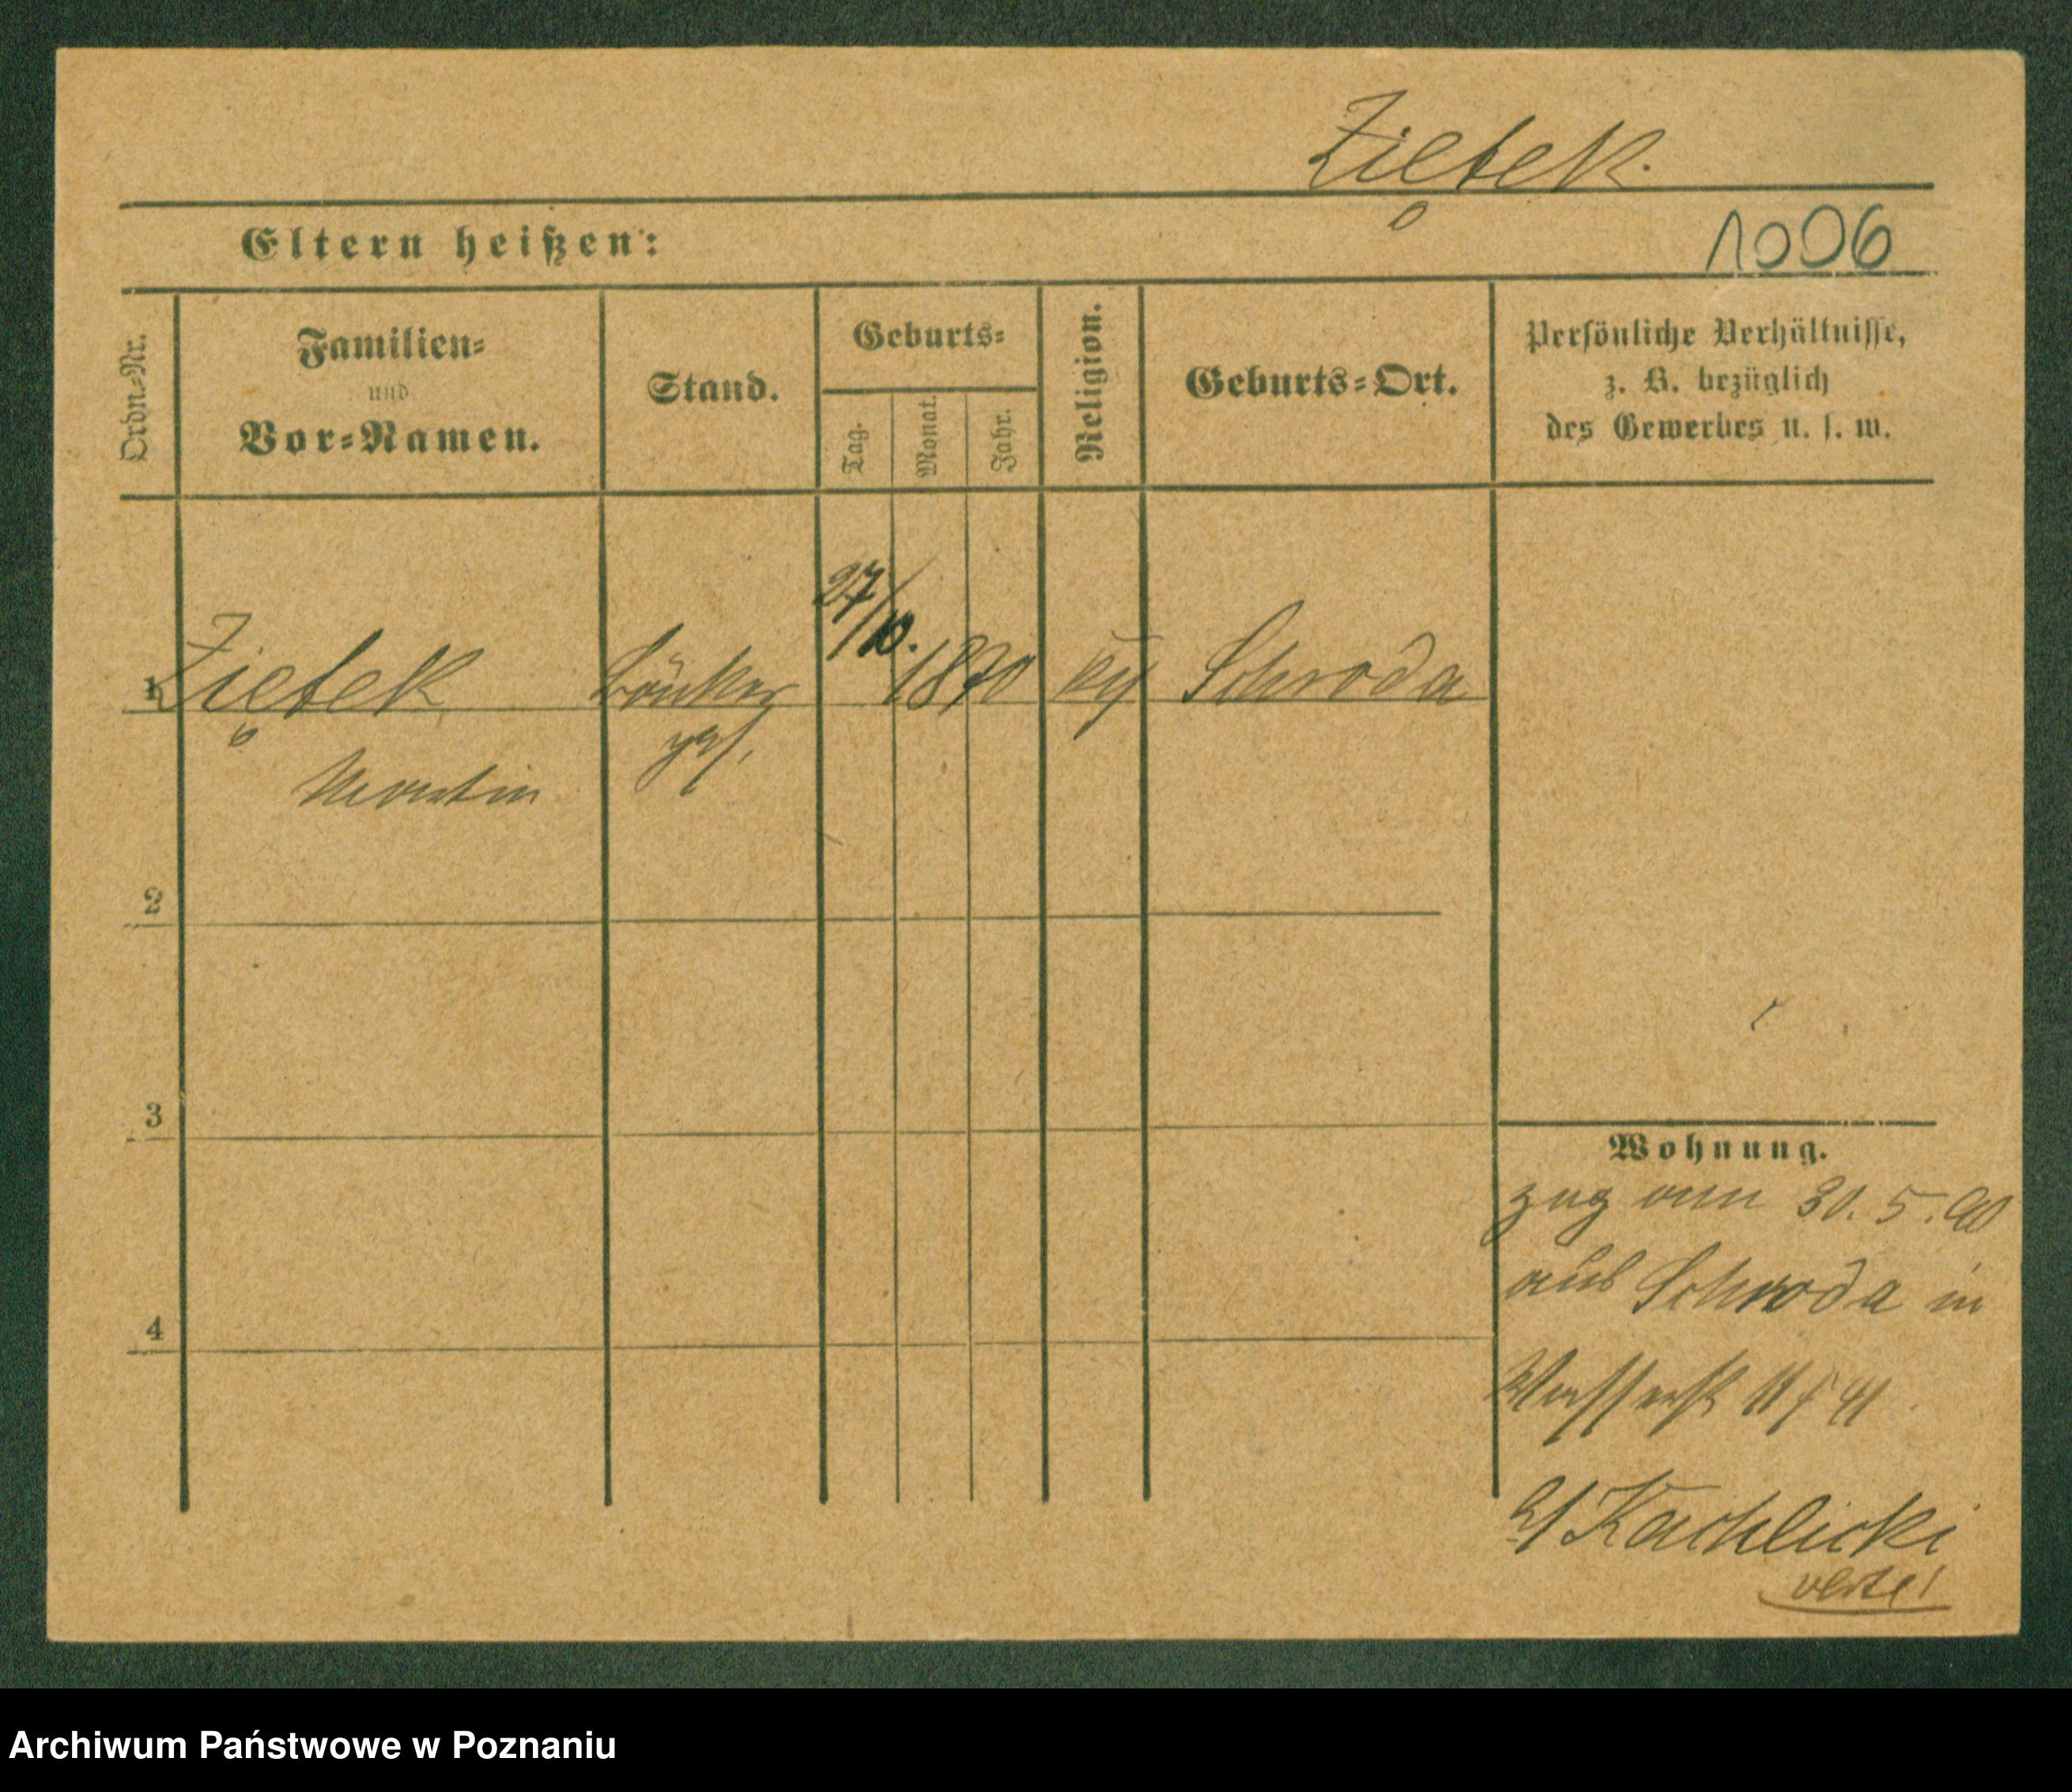 Ziętek.
Eltern heißen:
1006
Ordn.-Nr.
Familien-
und
Vor-Namen.
Stand.
Geburts-
Tag.
Monat.
Jahr.
Religion.
Geburts-Ort.
Persönliche Verhältnisse,
z. B. bezüglich
des Gewerbes u. s. w.
27/10.
1 Ziętek Bäcker 1870 Schroda
ges.
Martin
2
3
4
Wohnung.
zug vom 30. 5. 90
aus Schroda in
Wasserst
b/ Kachlicki
verte!
Archiwum Państwowe w Poznaniu